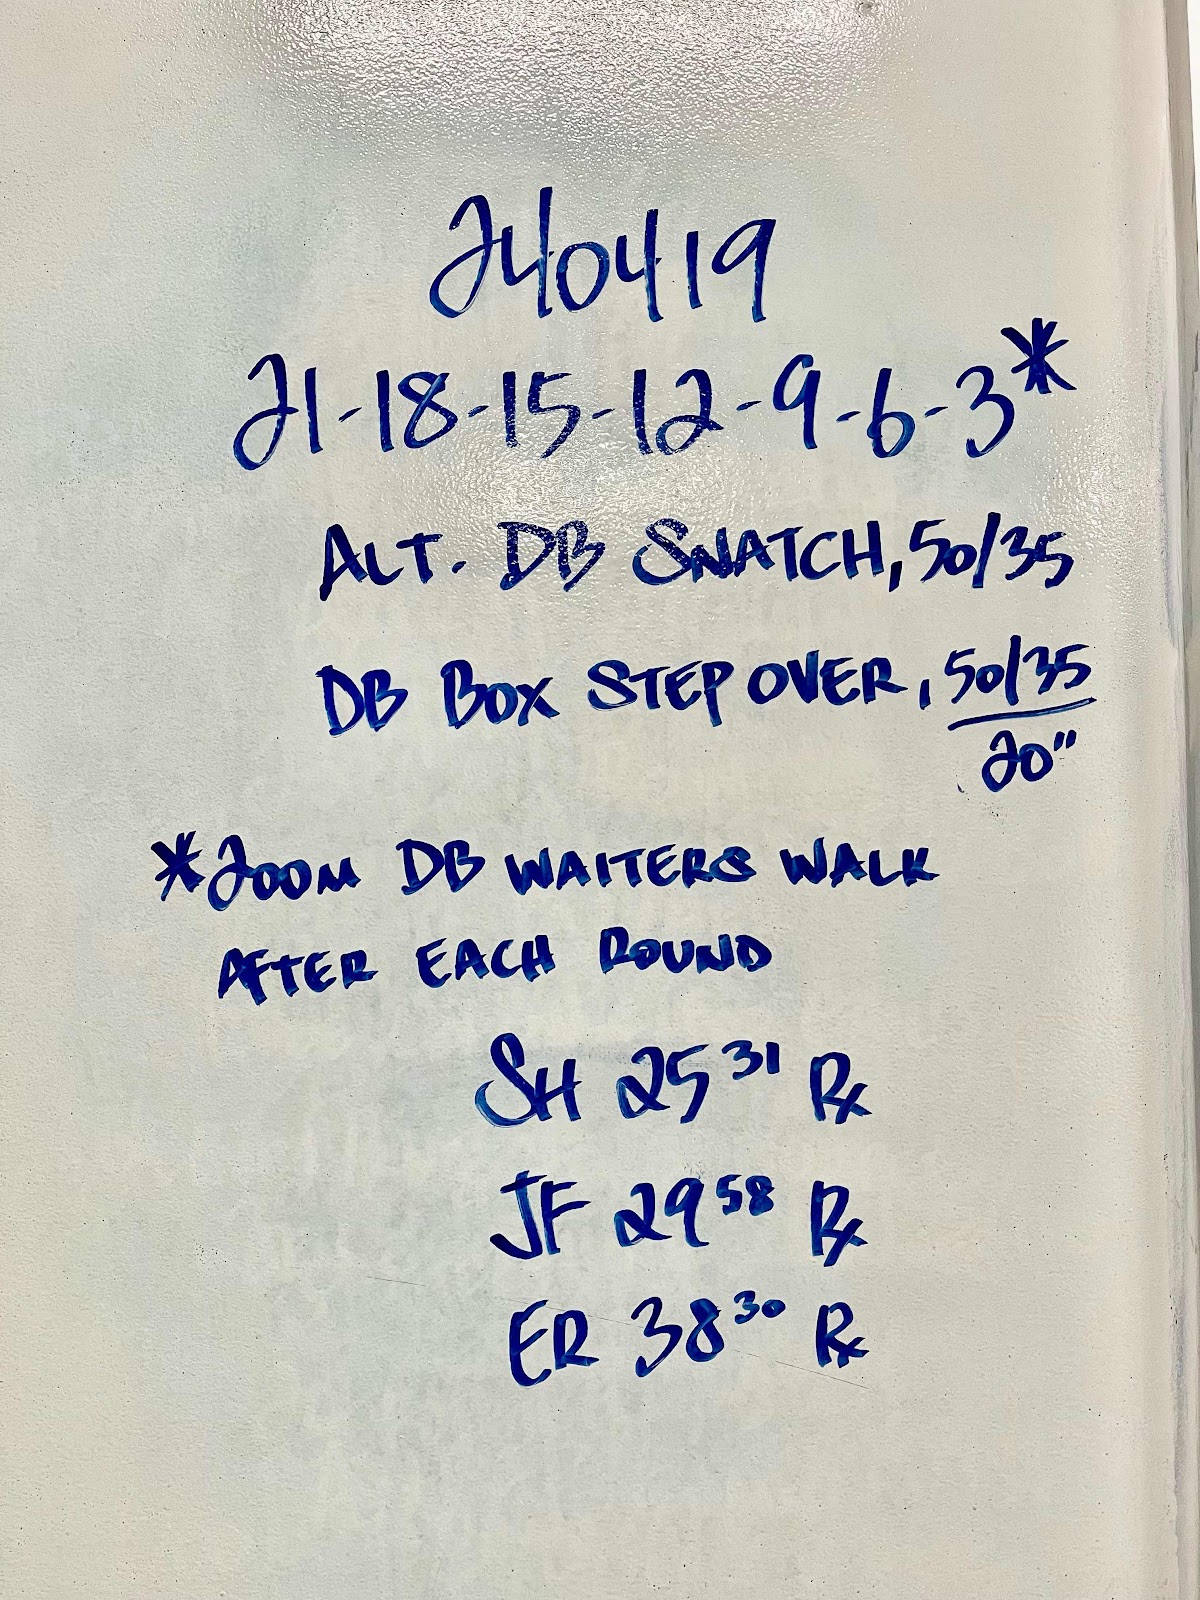 240419
21-18-15-12-9-6-3*
ALT. DB SNATCH, 50/35
DB BOX STEP OVER, 50/35
20"
*200M DB WAITERS WALK
AFTER EACH ROUND
SH 25 31 Rx
JF 29 58 Rx
ER 38 30 Rx